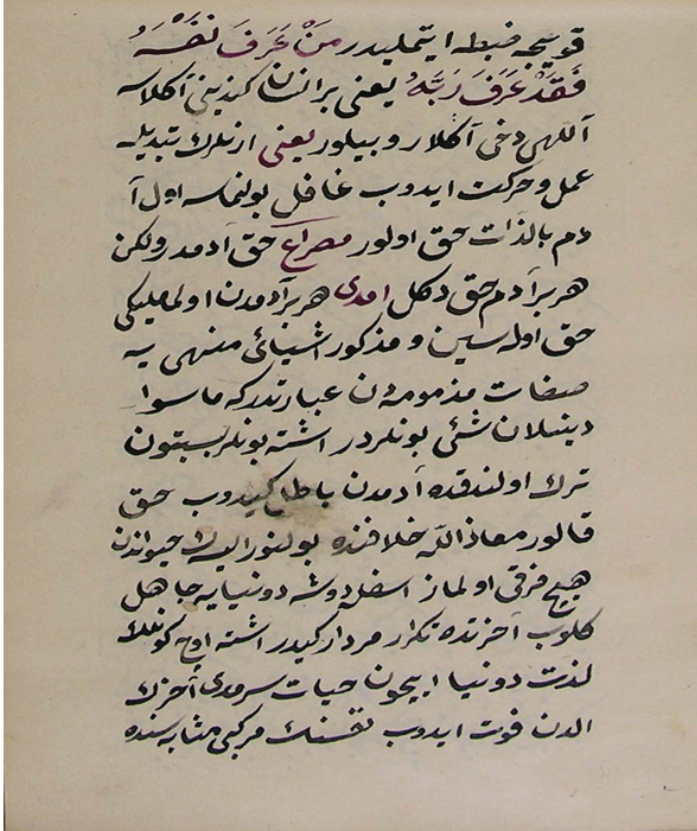 قویجه ضبطه ایتملیدر مَنْ عَرَفَ نَفْسَهُ
فَقَدْ عَرَفَ رَبَّهُ یعنی بر انسان کندینی آکلاسه
آللهی دخی آکلار و بیلور یعنی ارنلرك تبدیله
عمل و حرکت ایدوب غافل بولنماسه اول آ
دم بالذات حق اولور مصراع حق آدمدر ولکن
هر بر آدم حق دکل امدی هر بر آدمدن اولمامليکی
حق اوله سین و مذکور اشیائ منهی یه
صفات مذمومه دن عبارتدر که ماسوا
دینیلان شئی بونلردر اشته بونلر بسبتون
ترك اولندقده آدمدن باطل کیدوب حق
قالور معاذ الله خلافنده بولنور ایسه حیواندن
هیچ فرقی اولماز اسفله دوشه دونیایه جاهل
کلوب آخرتده تکرار مردار کیدر اشته اوچ کونلك
لذت دونیا ایچون حیات سرمدی آخرتك
الدن فوت ایدوب نفسنك مرکبی مثابه سنده